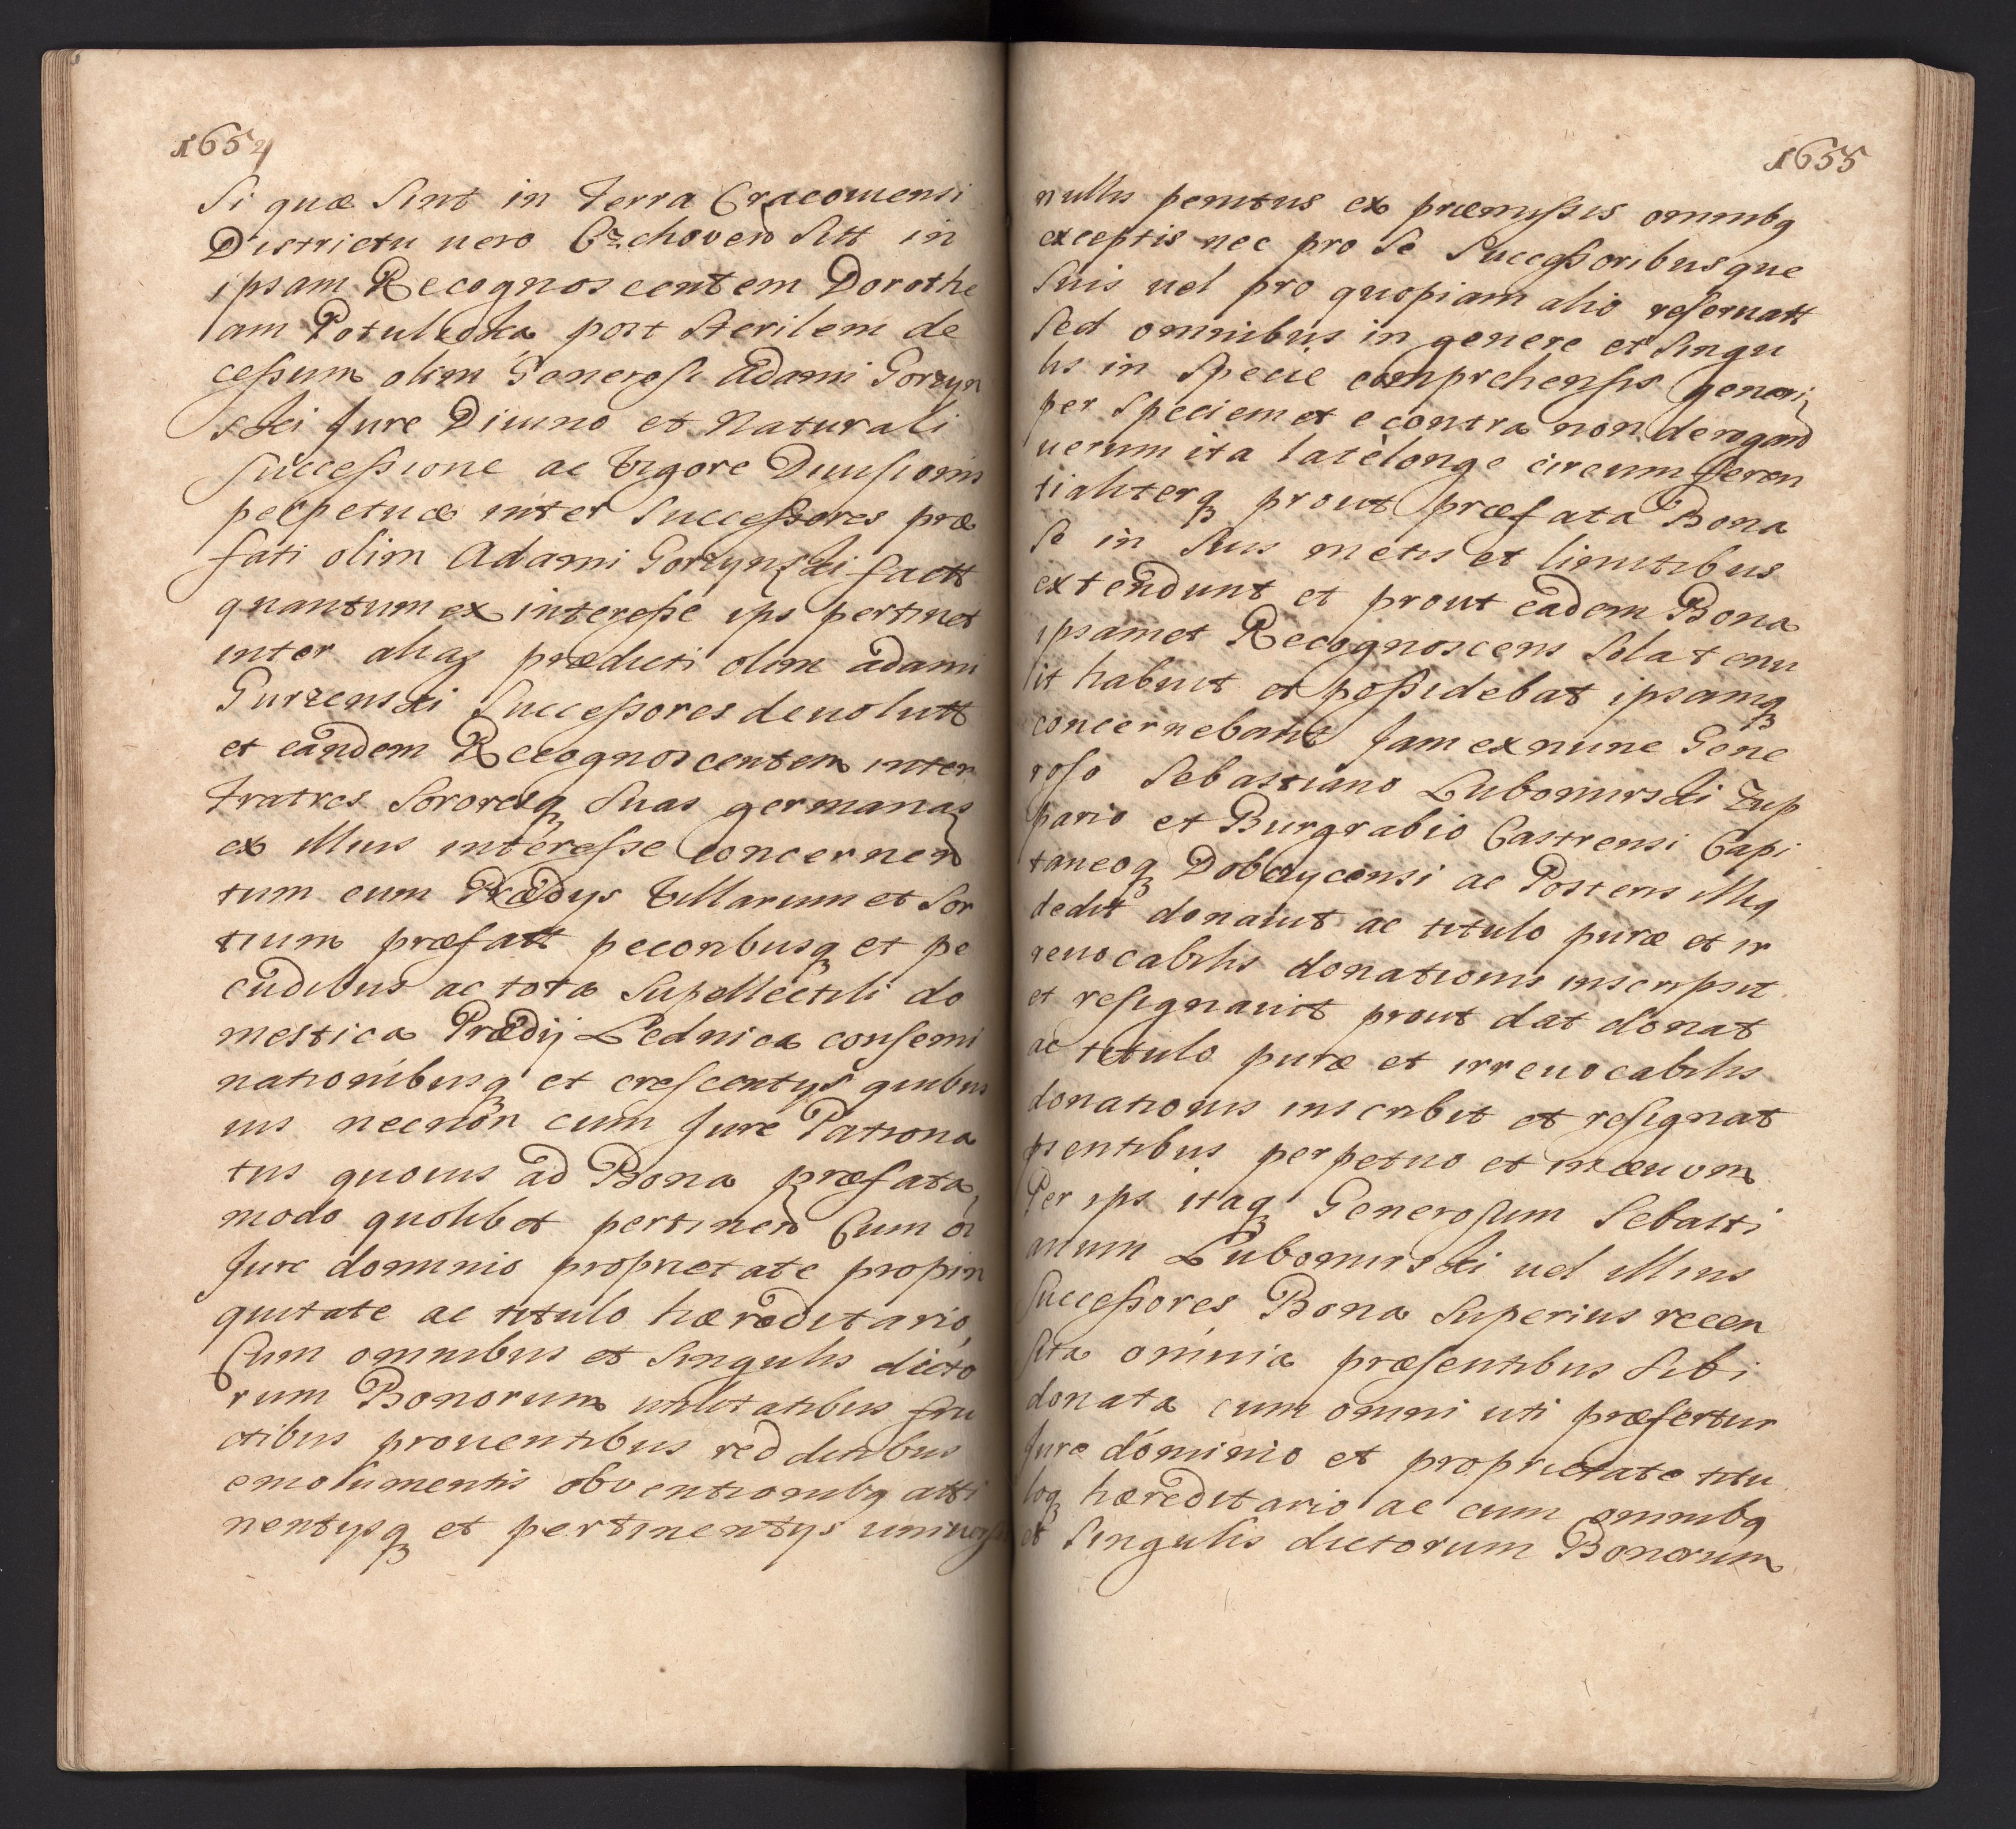 1654
Si quæ Sint in Terra Cracouiensi
Districtu uero Czchoven Sitt in
ipsam Recognoscentem Dorothe
am Potulecka post Sterilem de
cessum olim Generosi Adami Gorzyn
ski Jure Diuino et Naturali
Successione ac Vigore Diuisionis
perpetuæ inter Successores præ
fati olim Adami Gorzynski factt
quantum ex interesse ips pertinet
inter aliaq prædicti olim Adami
Gurzenski Successores deuolutt
et eandem Recognoscentem inter
Fratres Sororesq Suas germanas
ex illius interesse concernen
tum cum Prædys Villarum et Sor
tium præfatt pecoribusq et pe
cudibus ac tota Supellectili do
mestica Prædij Lednica consemi
nationibusq et crescentys quibus
uis necnon cum Jure Patrona
tus quouis ad Bona præfata,
modo quolibet pertinen Cum oi
Jure dominio proprietate propin
quitate ac titulo hæreditario,
Cum omnibus et Singulis dicto
rum Bonorum utilitatibus fru
ctibus prouentibus redditibus
emolumentis obventionibq atti
nentysq et pertinentys uniuersis
1655
nullis penitus ex præmissis omnibq
exceptis nec pro Se Successoribusque
Suis uel pro quopiam alio reseruatt
Sed omnibus in genere et Singu
lis in Specie comprehensis generi
per Speciem et e contra non derogand
uerum ita latè longe circumferen
tialiterq prout præfata Bona
Se in Suis metis et limitibus
extendunt et prout eadem Bona
ipsamet Recognoscens Sola tenu
it habuit et possidebat ipsamq
concernebant Jam ex nunc Gene
roso Sebastiano Lubomirski Zup
pario et Burgrabio Castrensi Capi
taneoq Dobczycensi ac Posteris illiq
dedit donauit ac titulo puræ et ir
reuocabilis donationis inscripsit
et resignauit prout dat donat
ac titulo puræ et irreuocabilis
donationis inscribit et resignat
psentibus perpetuo et in æuom
Per ips itaq Generosum Sebasti
anum Lubomirski uel illius
Successores Bona Superius recen
sita omnia præsentibus Sibi
donata cum omni uti præfertur
Jure dominio et proprietate titu
loq hæreditario ac cum omnibq
et Singulis dictorum Bonorum